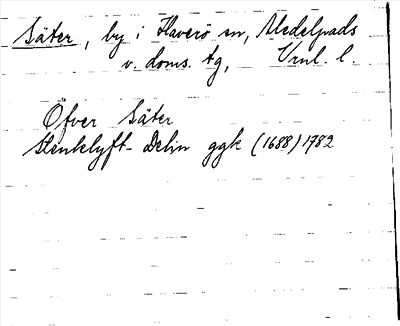 Säter, by i Haverö sn, Medelpads
v. doms. tg, Vnl. l.
Öfver Säter
Stenklyft-Delin ggk (1688) 1782